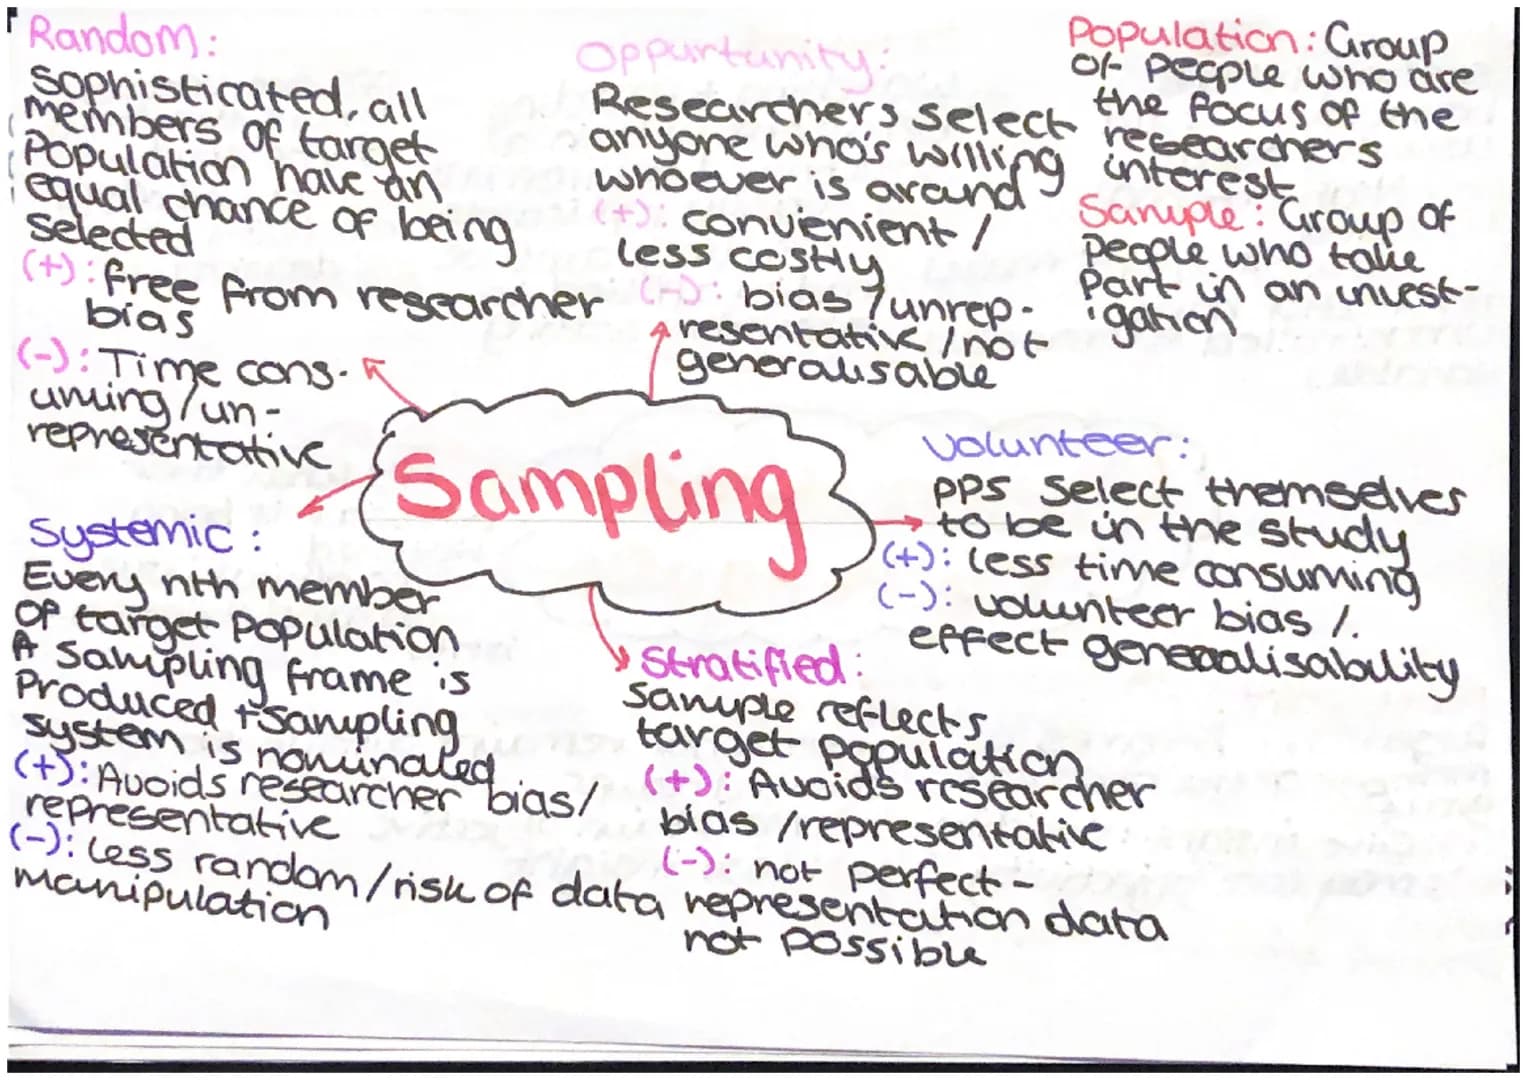 Random:
Sophisticated, all
members of target
Population have an
equal chance of being
selected
(+): free from researcher
bias
(-): Time cons-
uming/un-
representative
Oppurtunity:
Researchers select
anyone who's willing
whoever is around
(+): convienient /
less costly
(+): bias / unrep-
resentative / not
generalisable
Population: Group
of people who are
the focus of the
researchers
interest
Sample: Group of
people who take
Part in an invest-
igation
Sampling
Volunteer:
PPS select themselves
to be in the study
(+): less time consuming
(-): volunteer bias /.
effect generalisability
Systemic:
Every nth member
of target population
A sampling frame is
Produced + sampling
system is nominated.
(+): Avoids researcher bias/
representative
(-): less random/risk of data
manipulation
Stratified:
Sample reflects
target population
(+): Avoids researcher
bias / representative
(-): not perfect-
representation data
not possible